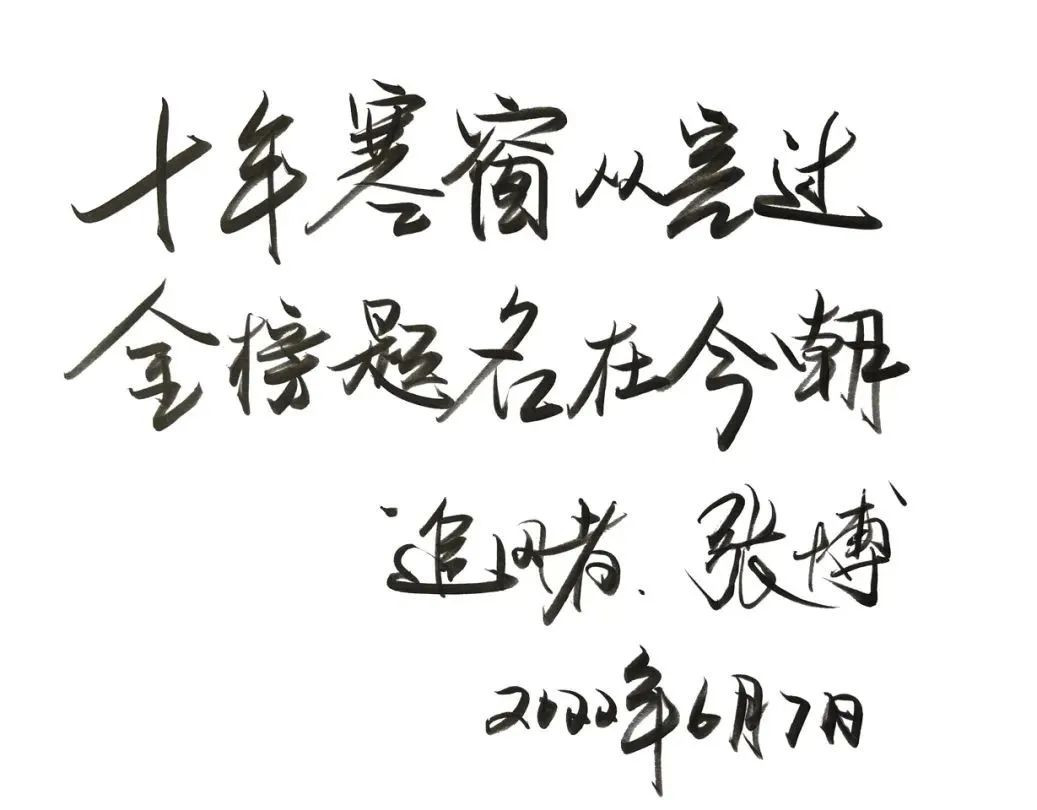 十年寒窗从容过
金榜题名在今朝
追风者.张博
2022年6月7日